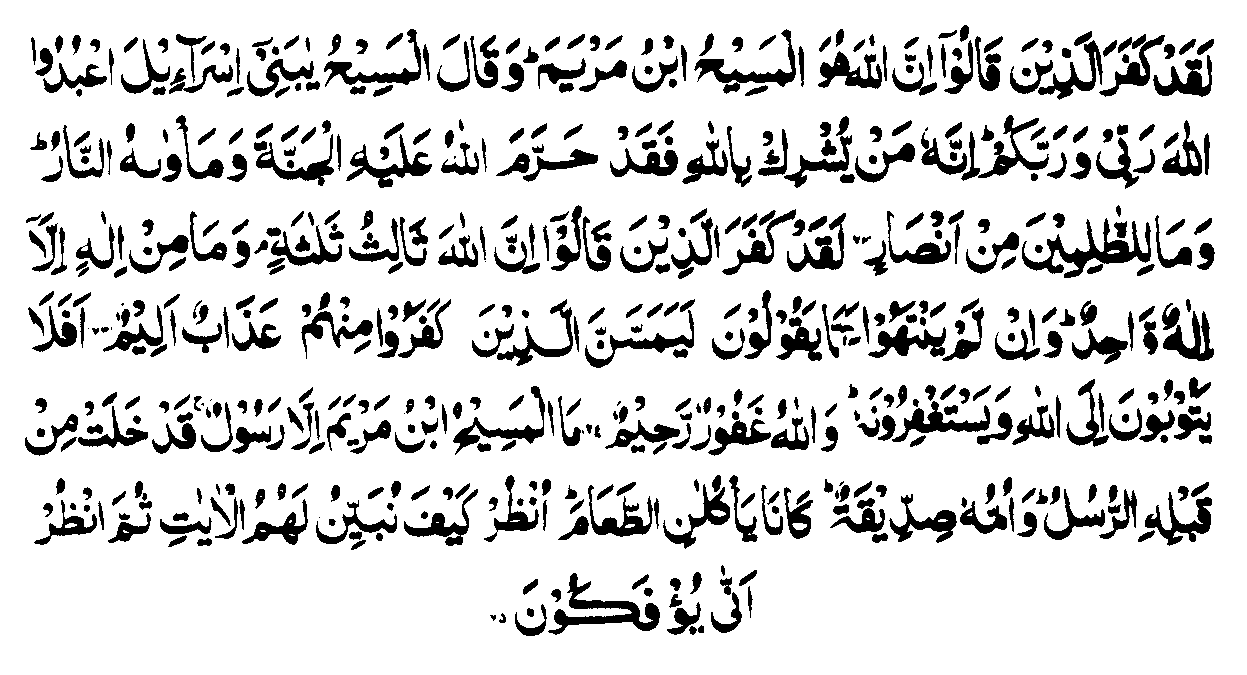 لَقَدْ كَفَرَ الَّذِيْنَ قَالُوْۤا اِنَّ اللّٰهَ هُوَ الْمَسِيْحُ ابْنُ مَرْيَمَ ؕ وَقَالَ الْمَسِيْحُ يٰبَنِيْۤ اِسْرَآءِيْلَ اعْبُدُوا
اللّٰهَ رَبِّيْ وَرَبَّكُمْ ؕ اِنَّهٗ مَنْ يُّشْرِكْ بِاللّٰهِ فَقَدْ حَرَّمَ اللّٰهُ عَلَيْهِ الْجَنَّةَ وَمَاْوٰىهُ النَّارُ ؕ
وَمَا لِلظّٰلِمِيْنَ مِنْ اَنْصَارٍ ۷۲ لَقَدْ كَفَرَ الَّذِيْنَ قَالُوْۤا اِنَّ اللّٰهَ ثَالِثُ ثَلٰثَةٍ ۘ وَمَا مِنْ اِلٰهٍ اِلَّاۤ
اِلٰهٌ وَّاحِدٌ ؕ وَاِنْ لَّمْ يَنْتَهُوْا عَمَّا يَقُوْلُوْنَ لَيَمَسَّنَّ الَّذِيْنَ كَفَرُوْا مِنْهُمْ عَذَابٌ اَلِيْمٌ ۷۳ اَفَلَا
يَتُوْبُوْنَ اِلَى اللّٰهِ وَيَسْتَغْفِرُوْنَهٗ ؕ وَاللّٰهُ غَفُوْرٌ رَّحِيْمٌ ۷۴ مَا الْمَسِيْحُ ابْنُ مَرْيَمَ اِلَّا رَسُوْلٌ ۚ قَدْ خَلَتْ مِنْ
قَبْلِهِ الرُّسُلُ ؕ وَاُمُّهٗ صِدِّيْقَةٌ ؕ كَانَا يَاْكُلٰنِ الطَّعَامَ ؕ اُنْظُرْ كَيْفَ نُبَيِّنُ لَهُمُ الْاٰيٰتِ ثُمَّ انْظُرْ
اَنّٰى يُؤْفَكُوْنَ ۷۵